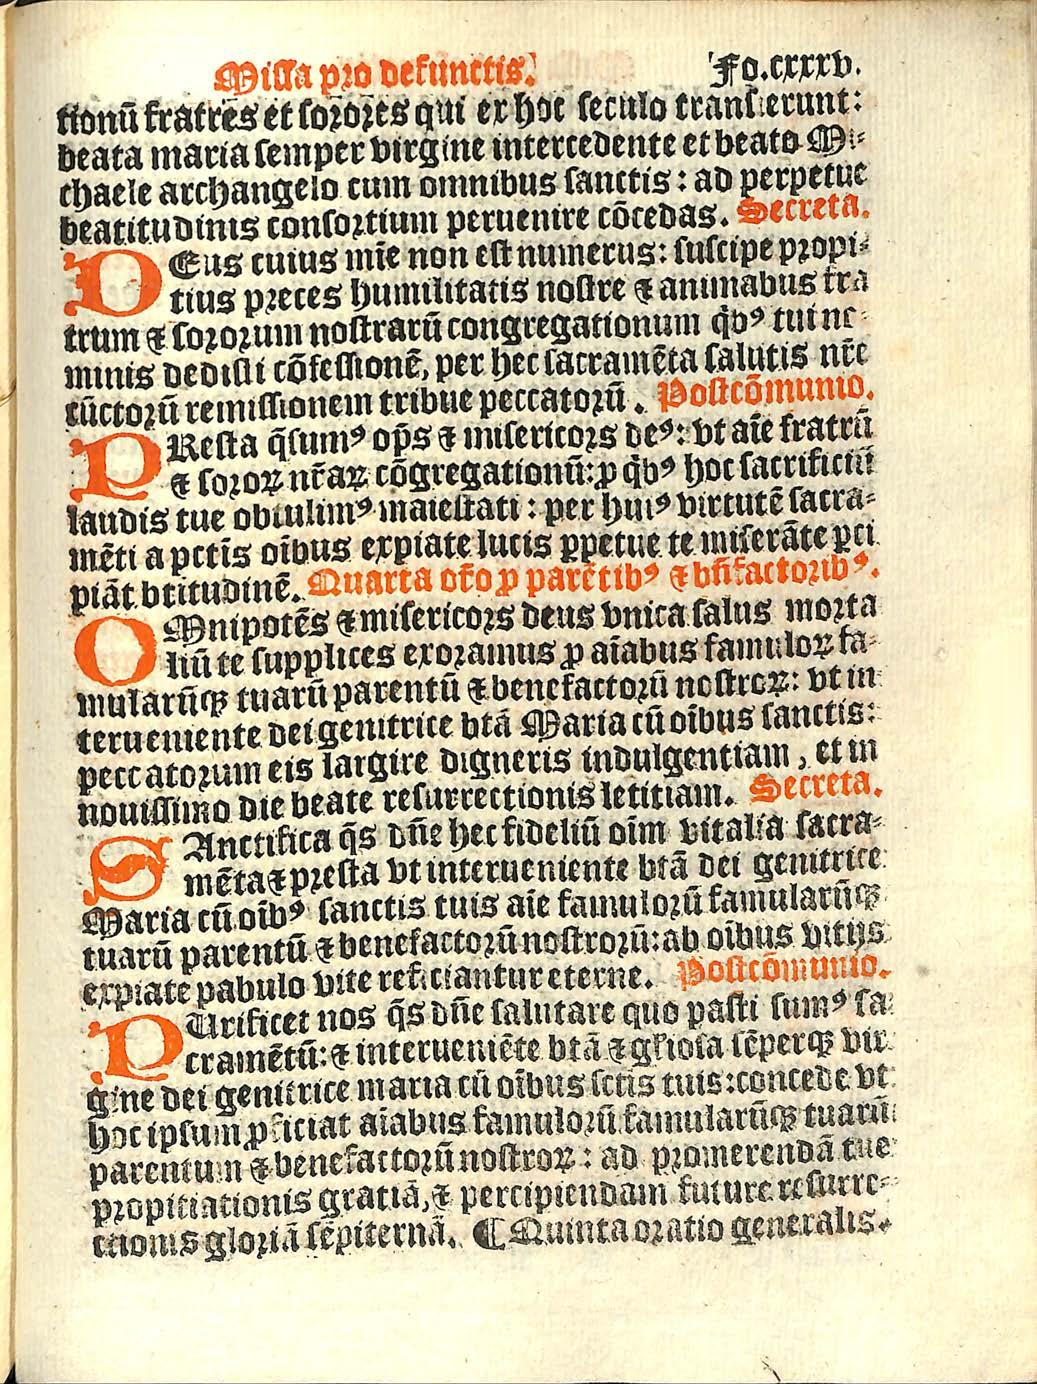 Missa pro defunctis. Fo.cxxxv.
tionū fratres et sorores qui ex hoc seculo transierunt:
beata maria semper virgine intercedente et beato Mi-
chaele archangelo cum omnibus sanctis: ad perpetue
beatitudinis consortium peruenire cōcedas. Secreta.
DEus cuius mīe non est numerus: suscipe propi-
tius preces humilitatis nostre ⁊ animabus fra
trum ⁊ sororum nostrarū congregationum q̄bꝰ tui no-
minis dedisti cōfessionē, per hec sacramēta salutis nr̄e
cūctorū remissionem tribue peccatorū. Postcōmunio.
PResta q̄sumꝰ op̄s ⁊ misericors deꝰ: vt aīe fratrū
⁊ soroꝝ nr̄aꝝ cōgregationū: ꝓ q̄bꝰ hoc sacrificiū
laudis tue obtulimꝰ maiestati: per huiꝰ virtutē sacra-
mēti a pctīs oībus expiate lucis ꝑpetue te miserāte ꝑci
piāt btitudinē. Quarta or̄o ꝓ parētibꝰ ⁊ bn̄factoribꝰ.
OMnipotēs ⁊ misericors deus vnica salus morta
liū te supplices exoramus ꝓ aīabus famuloꝝ fa-
mularūqꝫ tuarū parentū ⁊ benefactorū nostroꝝ: vt in
terueniente dei genitrice btā Maria cū oībus sanctis:
peccatorum eis largire digneris indulgentiam, et in
nouissimo die beate resurrectionis letitiam. Secreta.
SAnctifica q̄s dn̄e hec fideliū oīm vitalia sacra-
mēta ⁊ presta vt interueniente btā dei genitrice
Maria cū oībꝰ sanctis tuis aīe famulorū famularūqꝫ
tuarū parentū ⁊ benefactorū nostrorū: ab oībus vitijs
expiate pabulo vite reficiantur eterne. Postcōmunio.
PUrificet nos q̄s dn̄e salutare quo pasti sumꝰ sa
cramētū: ⁊ interueniēte btā ⁊ gl̄iosa sēperqꝫ vir
gine dei genitrice maria cū oībus sctīs tuis: concede vt
hoc ipsum ꝓficiat aīabus famulorū famularūqꝫ tuarū
parentum ⁊ benefactorū nostroꝝ: ad promerendā tue
propitiationis gratiā, ⁊ percipiendam future resurre-
ctionis gloriā sēpiternā. ¶ Quinta oratio generalis.